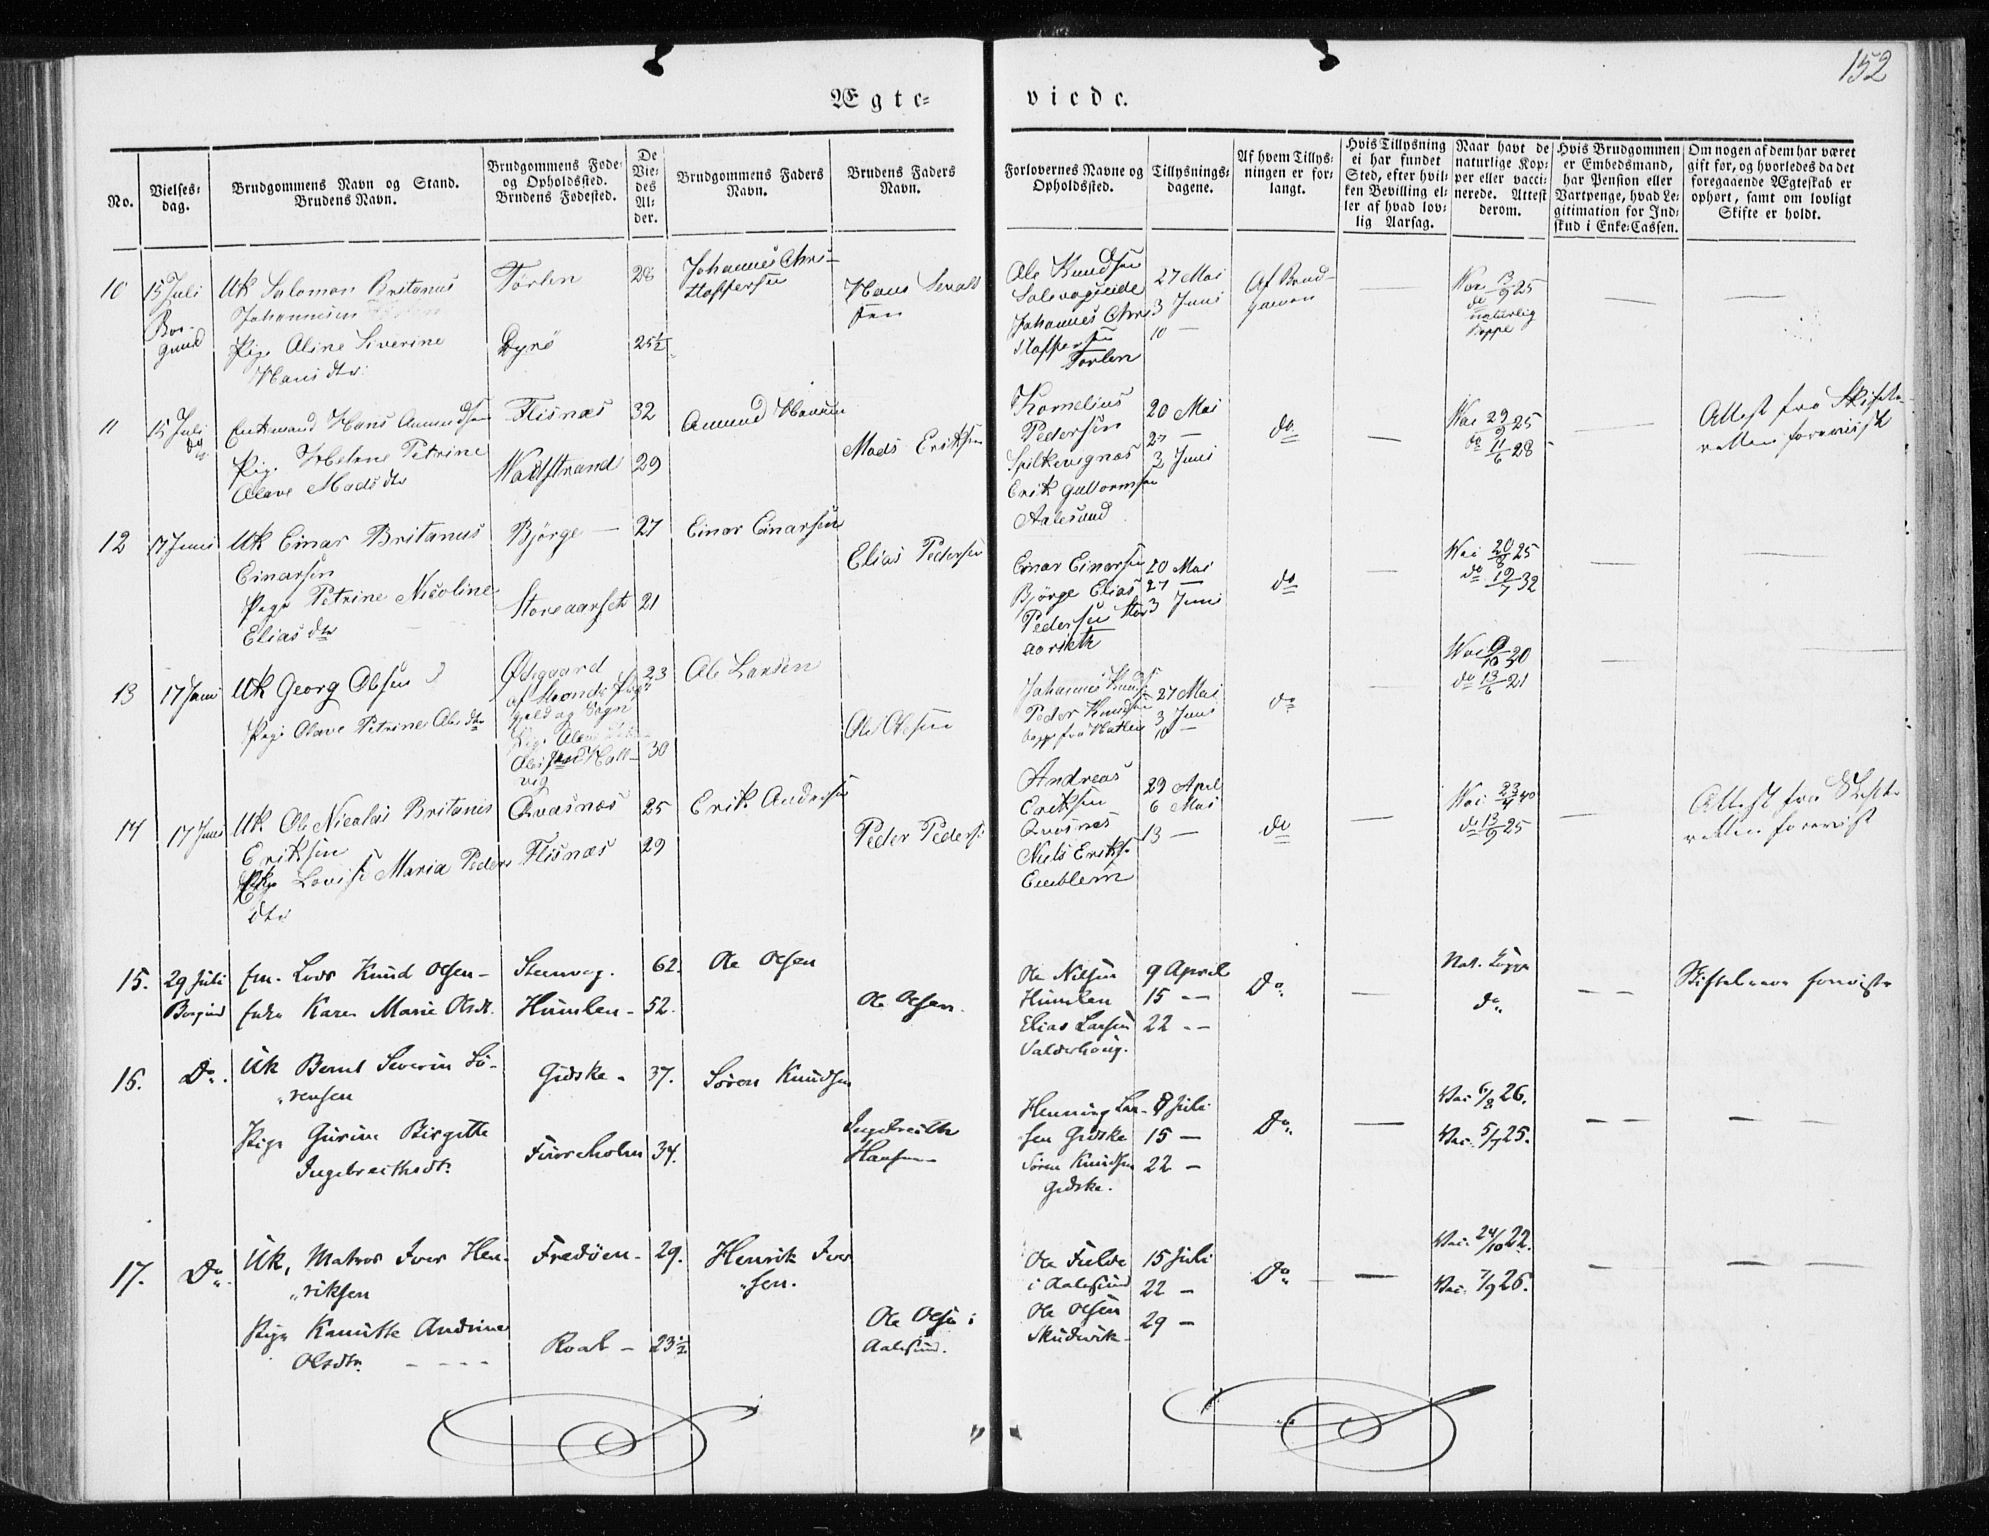 152
Ægte=
viede.
No.
Vielses=
dag.
Brudgommens Navn og Stand.
Brudens Navn.
Brudgommens Føde=
og Opholdssted.
Brudens Fødested.
De
Vie=
des
Al=
der.
Brudgommens Faders
Navn.
Brudens Faders
Navn.
Forlovernes Navne og
Opholdssted.
Tillysnings=
dagene.
Af hvem Tillys=
ningen er for=
langt.
Hvis Tillysning
ei har fundet
Sted, efter hvil=
ken Bevilling el=
ler af hvad lov=
lig Aarsag.
Naar havt de
naturlige Kop=
per eller vacci=
nerede. Attest
derom.
Hvis Brudgommen
er Embedsmand,
har Pension eller
Vartpenge, hvad Le=
gitimation for Ind=
skud i Enke=Cassen.
Om nogen af dem har været
gift før, og hvorledes da det
foregaaende Ægteskab er
ophørt, samt om lovligt
Skifte er holdt.
10
15 Juli
Bor-
gund
Uk Salomon Britanus
Johannesen
Pige Aline Severine
Hansdtr
Dyrø
28
25½
Johannes Chri-
stoffersen
Hans
sen
Ole Knudsen
Solevogseide
Johannes Chri
stoffersen
27 Mai
3 Juni
10 —
Af Brud-
gomen
Vac 13/9 25
do
naturlig
Koppe
11
15 Juli
do
Enkmand Hans Amundsen
Pige Helene Petrine
Olave Madsdtr
Flisnæs
32
29
Amund Hansen
Mads Eriksen
Kornelius
Pedersen
Spilkevignæs
Erik Guttormsen
Aalesund
20 Mai
27 —
3 Juni
do
Vac 29/9 25
do 11/6 28
Attest fra Skifte-
retten forevist
12
17 Juni
Uk Einar Britanus
Einarsen
Pige Petrine Nicoline
Eliasdtr
Bjørge —
Storeaarseth
27
21
Einar Einarsen
Elias Pedersen
Einar Einarsen
Bjørge Elias
Pedersen Stor
aarseth
20 Mai
27 —
3 Juni
do
Vac 20/8 25
do 19/7 32
13
17 Juni
Uk Georg Olsen
Pige Olave Petrine Olsdtr
Ødegaard
23
30
Ole Larsen
Ole Olsen
Johannes Knuds
Peder Knudsen
begge fra Hatlen
27 Mai
3 Juni
10 —
do
Vac 9/10 20
do 13/6 21
14
17 Juni
Uk. Ole Nicolai Britanus
Eriksen
Pige Lovise Maria Peders
dtr
Qvasnæs
Flisnæs
25
29
Erik Andersen
Peder Peders
Andreas
Eriksen
Qvasnes
Niels Eriks
Emblem
29 April
6 Mai
13 —
do
Vac 23/9 40
do 13/9 25
Attest fra Skifte-
retten forevist
15.
29 Juli
Borgund
Em. Lods Knud Olsen —
Enke Karen Marie Olsdt.
Steenvog.
Humlen —
62.
52.
Ole Olsen
Ole Olsen.
Ole Nilsen
Humlen
Elias Larsen
Valderhoug.
9 April
15 —
22 —
Do.
Nat. Kopp
do.
Skiftebrev forevist
16.
Do.
Uk Bernt Severin Sø-
rensen
Pige Gurine Birgitte
Ingebrethsdt.
Gidske —
37.
34.
Søren Knudsen
Ingebreth
Hansen
Henning Lar-
sen Gidske
Søren Knudsen
Gidske.
8 Juli
15 —
22 —
Do.
Vac 6/8 26.
Vac. 5/9 25.
17.
Do.
Uk, Matros Iver Hen-
riksen
Pige Kanutte Andrine
Olsdtr. — — —
Fredøen —
Roal —
29.
23½
Henrik Iver
sen.
Ole Olsen i
Aalesund.
i Aalesund
Ole Olsen
Skudevik
15 Juli
22 —
29 —
Do.
Vac. 24/10 22.
Vac. 7/9 26.